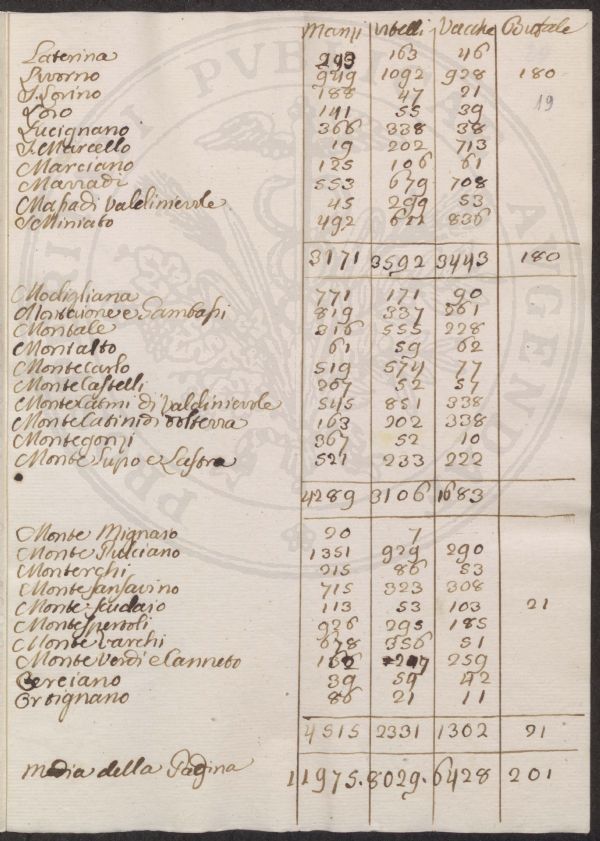 Manzi Vitelli Vacche Bufale
Laterina 293 163 46
Livorno 949 1092 928 180
S. Sorino 188 47 21
19
Loro 141 55 39
Lucignano 366 338 38
S. Marcello 19 202 713
Marciano 125 106 61
Marradi 553 679 708
Massa di Valdinievole 45 299 53
S. Miniato 492 611 836
3171 3592 3443 180
Modigliana 771 171 90
Montaione e Gambassi 819 337 361
Montale 216 555 228
Montalto 61 59 62
Monte Carlo 519 574 77
Monte Castelli 267 52 57
Monte Catini di Valdinievole 545 851 338
Monte Catini di Volterra 163 202 338
Montegonzi 367 52 10
Monte Lupo e Lastra 521 233 222
4289 3106 1683
Monte Mignaio 20 7
Monte Pulciano 1351 929 290
Monterchi 215 86 53
Monte Sansavino 715 323 308
Monte Scudaio 113 53 103 21
Montespertoli 926 295 185
Monte Varchi 678 356 51
Monte Verdi e Canneto 162 259
Orciano 39 59 42
Orsignano 86 21 11
4515 2331 1302 21
Media della Pagina 11975. 8029. 6428 201
PUBLICA AUGENDI